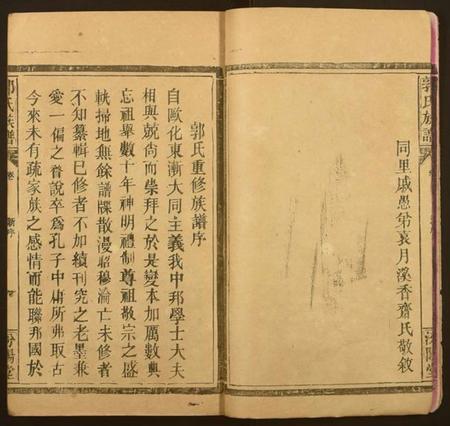 郭氏族譜
同里戚愚弟袁月溪香齋氏敬敘
汾陽堂
郭氏重修族譜序
自歐化東漸大同主義我中邦學士大夫
相與兢尚而崇拜之於是變本加厲數典
忘祖舉數十年神明禮制尊祖敬宗之盛
軼掃地無餘譜牒散漫昭穆淪亡未修者
不知纂輯已修者不加續刊究之老墨兼
愛一偏之說卒爲孔子中庸所弗取古
今來未有疏家族之感情而能聯邦國於
郭氏族譜
新序
汾陽堂